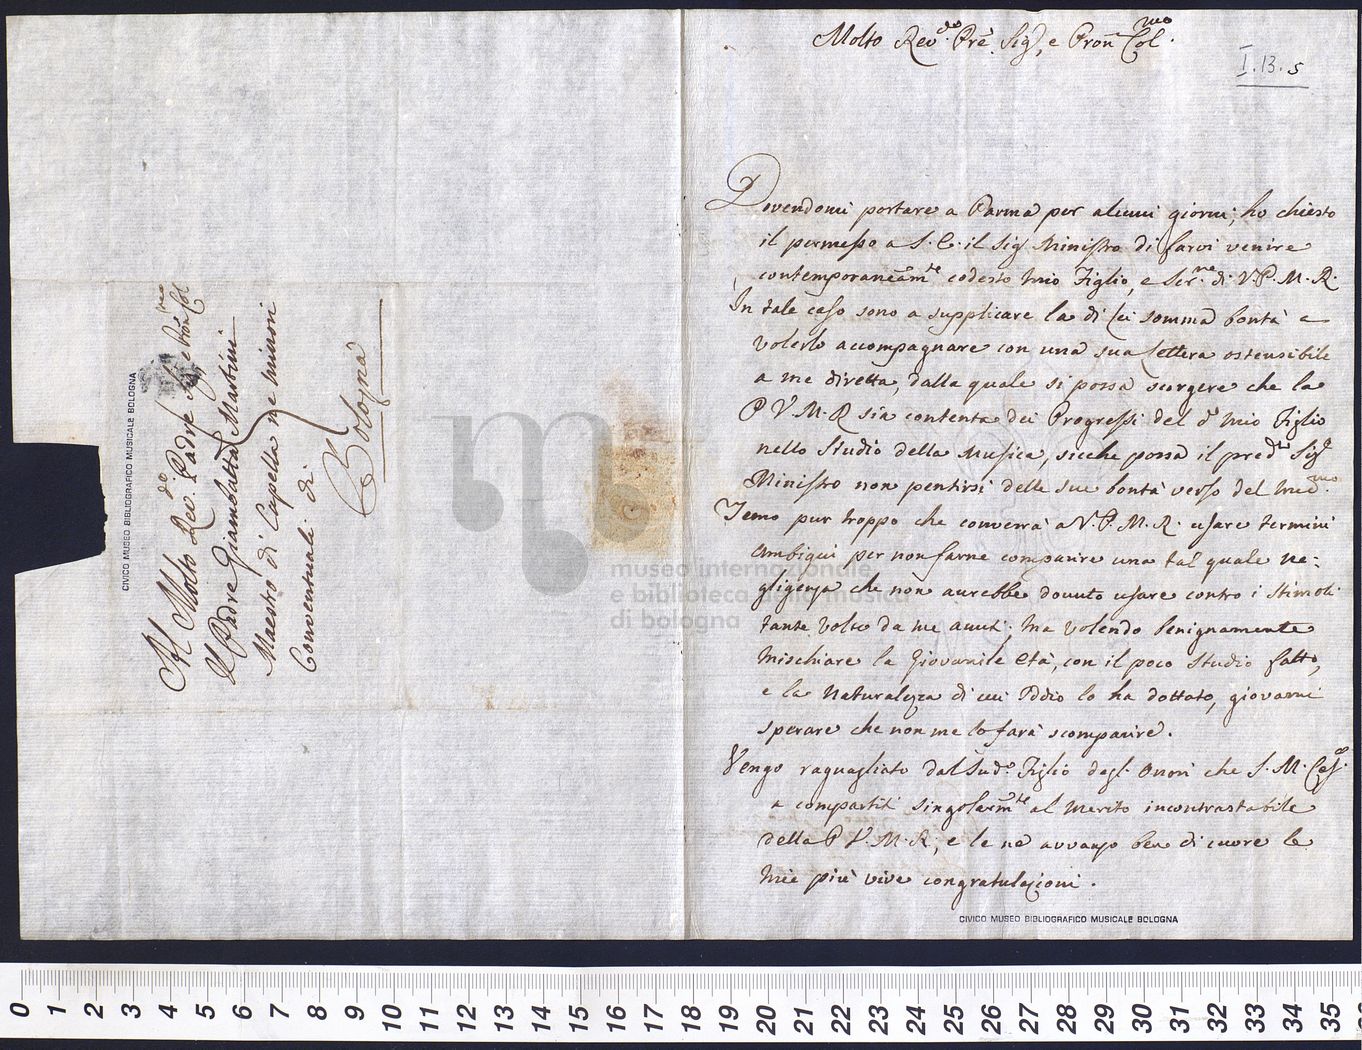 Al Molto Rev.do Padre Sig.e e Pron Col.mo
Il Padre Giambatta Martini
Maestro di Capella ne minori
Conventuali di
Bologna
CIVICO MUSEO BIBLIOGRAFICO MUSICALE BOLOGNA
museo internazionale
e biblioteca della musica
di bologna
Molto Rev.do Pre Sig., e Pron Col.mo
I.13.5
Dovendomi portare a Parma per alcuni giorni, ho chiesto
il permesso a S. E. il Sig. Ministro di farvi venire
contemporaneam.te codesto mio Figlio, e Ser.re di V.P.M.R.
In tale caso sono a supplicare la di lei somma bontà a
volerlo accompagnare con una sua lettera ostensibile
a me diretta, dalla quale si possa scorgere che la
P.V.M.R. sia contenta dei Progressi del d.o mio Figlio
nello Studio della Musica, sicche possa il pred.to Sig.
Ministro non pentirsi delle sue bontà verso del med.mo
Temo pur troppo che converrà a V.P.M.R. usare termini
ambigui per non farne comparire una tal quale ne=
gligenza che non aurebbe dovuto usare contro i stimoli
tante volte da me auuti; ma volendo benignamente
mischiare la giovanile età, con il poco studio fatto,
e la naturalezza di cui Iddio lo ha dottato, giovami
sperare che non me lo farà scomparire.
Vengo raguagliato dal Sud.o Figlio degl. Onori che S. M. Ces.
a compartiti singolarm.te al merito incontrastabile
della P.V.M.R., e le ne avvanzo ben di cuore le
mie più vive congratulazioni.
CIVICO MUSEO BIBLIOGRAFICO MUSICALE BOLOGNA
0 1 2 3 4 5 6 7 8 9 10 11 12 13 14 15 16 17 18 19 20 21 22 23 24 25 26 27 28 29 30 31 32 33 34 35